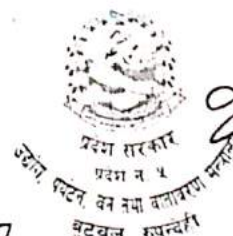 प्रदेश सरकार
प्रदेश नं. ५
उद्योग, पर्यटन, वन तथा वातावरण मन्त्रालय
बुटवल, रुपन्देही